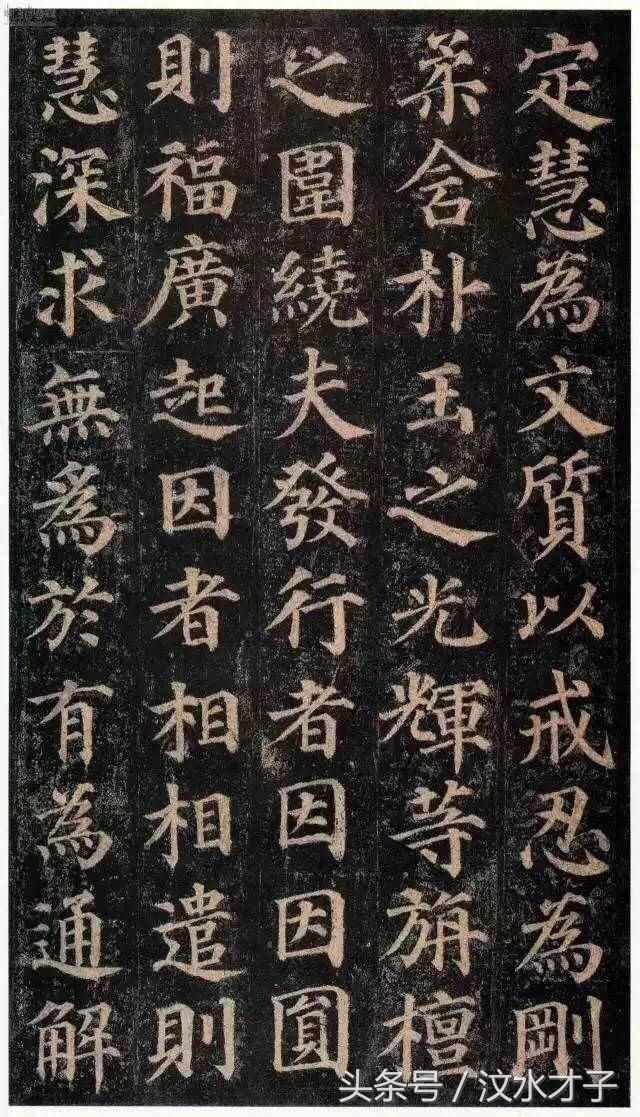 定慧為文質以戒忍為剛
柔含朴玉之光輝等旃檀
之圍繞夫發行者因因圓
則福廣起因者相相遣則
慧深求無爲於有為通解
头条号 / 汶水才子